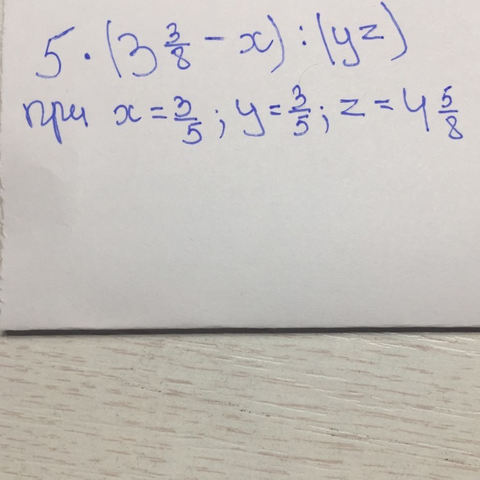 5 · (3 3/8 - x) : (yz)
при x = 3/5 ; y = 3/5 ; z = 4 5/8